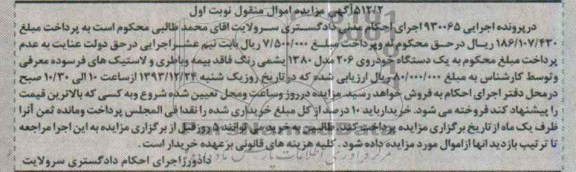 ۵۱۲/۲ آگهی مزایده اموال منقول نوبت اول
در پرونده اجرایی ۹۳۰۰۶۵ اجرای احکام دادگستری سرولایت آقای محمد طالبی محکوم است به پرداخت مبلغ
۱۸۶/۱۰۷/۴۳۰ ریال در حق محکوم و پرداخت مبلغ ۷/۵۰۰/۰۰۰ ریال بابت نیم عشر اجرایی در حق دولت عنایت به عدم
پرداخت مبلغ محکوم به یک دستگاه خودروی ۲۰۶ مدل ۱۳۸۰ یشمی رنگ فاقد بیمه و باطری و لاستیک های فرسوده معرفی
و توسط کارشناس به مبلغ ۸۰/۰۰۰/۰۰۰ ریال ارزیابی شده که در تاریخ روز یک شنبه ۱۳۹۳/۱۲/۲۴ از ساعت ۱۰ الی ۱۰/۳۰ صبح
در محل دفتر اجرای احکام به فروش خواهد رسید. مزایده در روز و ساعت و محل تعیین شده شروع و به کسی که بالاترین قیمت
را پیشنهاد کند فروخته می شود. خریدار باید ۱۰ درصد از کل مبلغ خریداری شده را نقدا فی المجلس پرداخت و مانده ثمن آنرا
ظرف یک ماه از تاریخ برگزاری مزایده پرداخت کند. طالبین به خرید می توانند ۵ روز قبل از برگزاری مزایده به این اجرا مراجعه
تا ترتیب بازدید آنها از اموال مورد مزایده داده شود. کلیه هزینه های قانونی برعهده خریدار است.
دادورز اجرای احکام دادگستری سرولایت